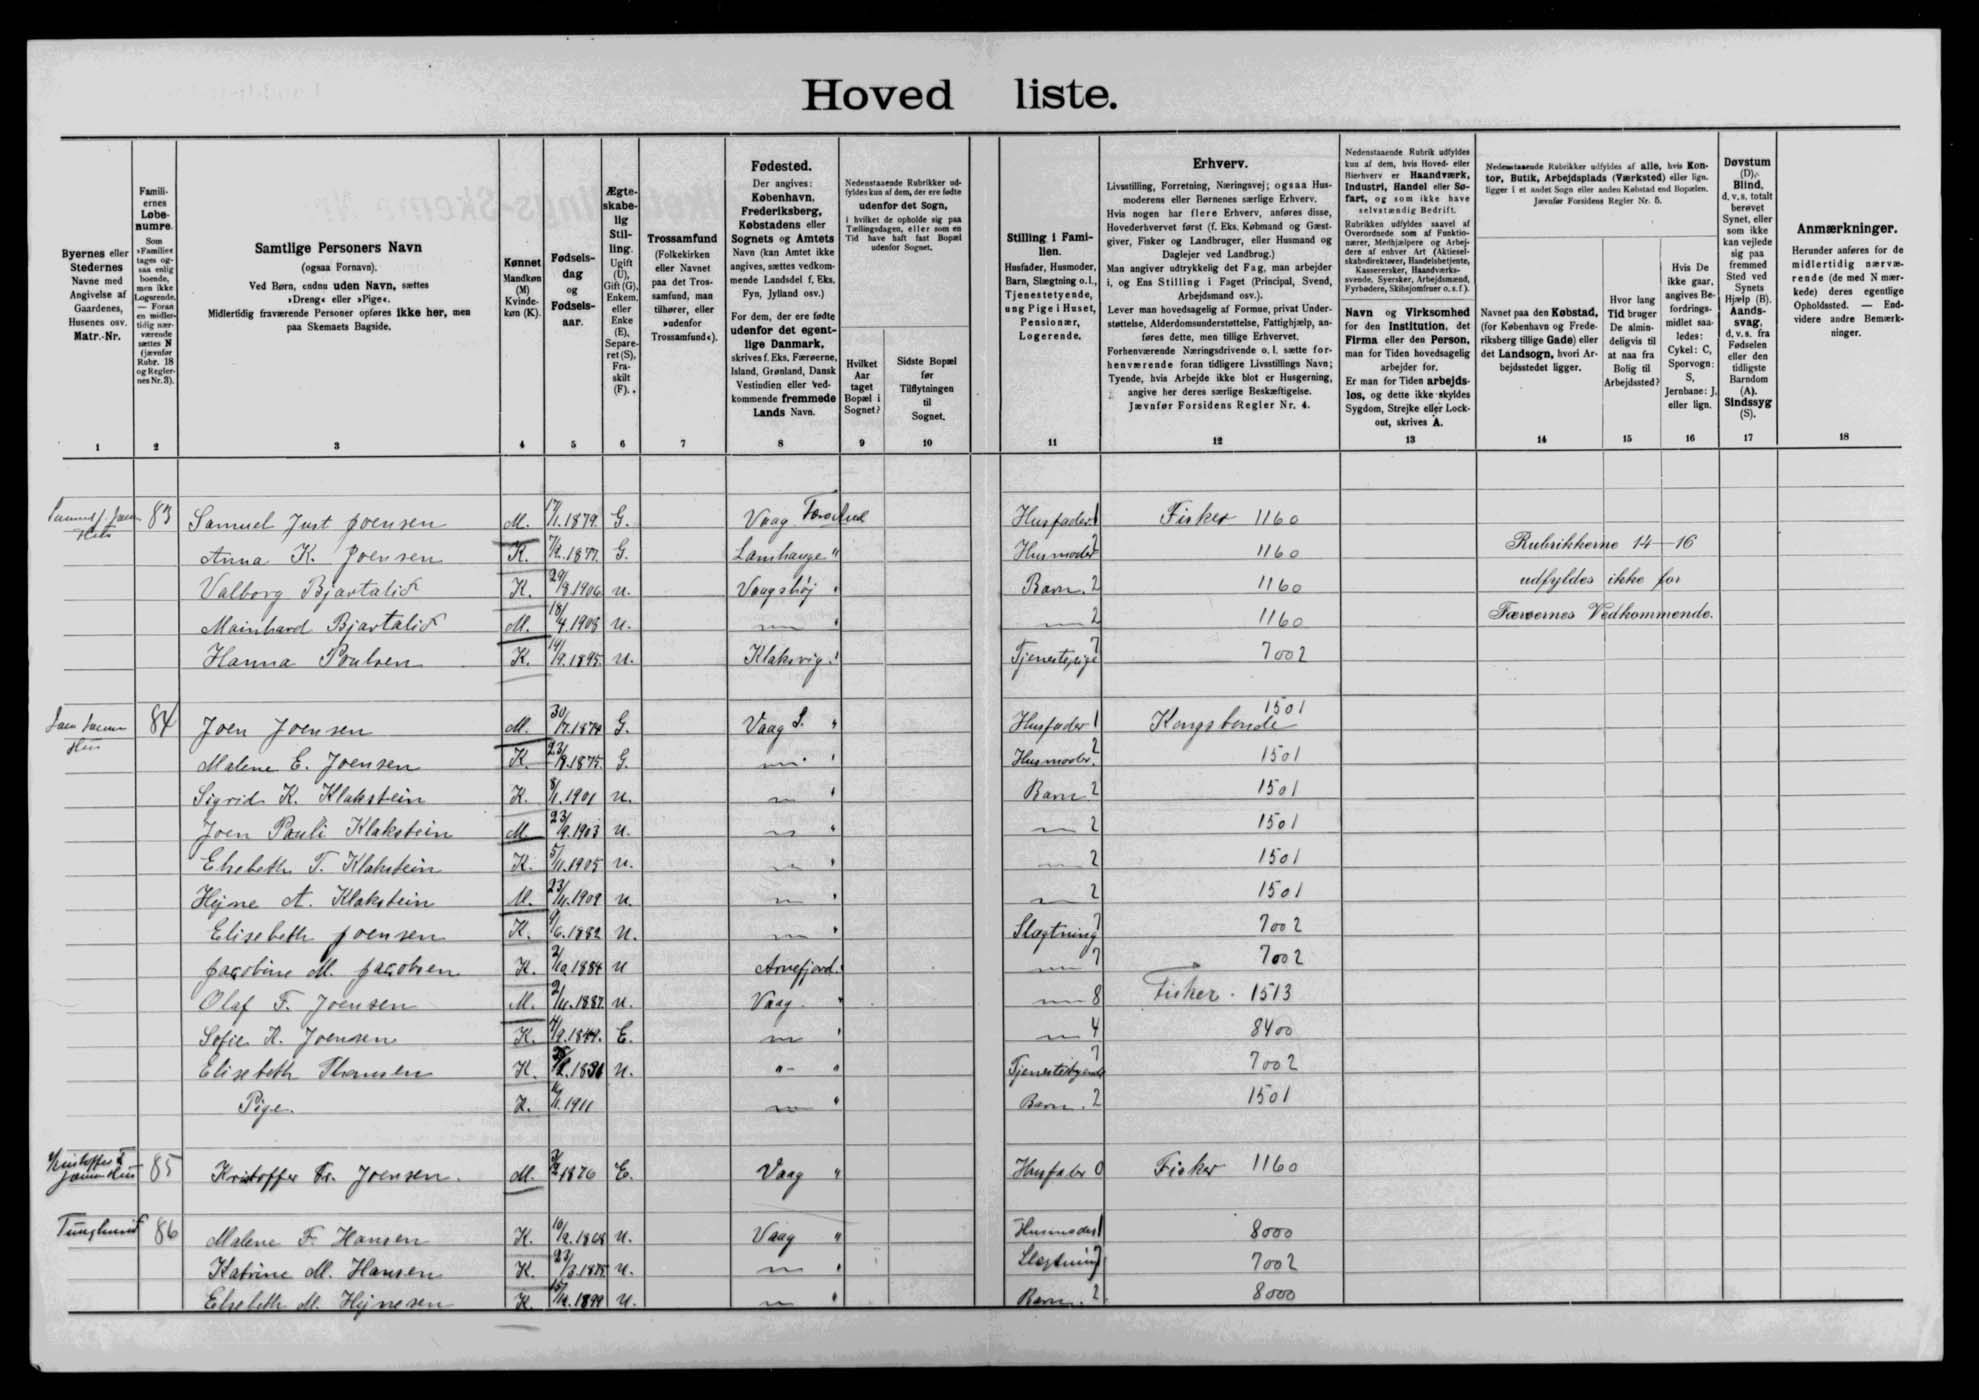 Hoved liste.
Byernes eller Stedernes Navne med Angivelse af Gaardenes, Husenes osv. Matr.-Nr.
Familiernes Løbenumre.
Som »Familie« tages ogsaa enlig boende, men ikke Logerende. — Foran en midlertidig nærværende sættes N (jævnfør Rubr. 18 og Reglernes Nr. 3).
Samtlige Personers Navn
(ogsaa Fornavn).
Ved Børn, endnu uden Navn, sættes »Dreng« eller »Pige«.
Midlertidig fraværende Personer opføres ikke her, men paa Skemaets Bagside.
Kønnet
Mandkøn (M) Kvindekøn (K).
Fødselsdag og Fødselsaar.
Ægteskabelig Stilling.
Ugift (U), Gift (G), Enkem. eller Enke (E), Separeret (S), Fraskilt (F).
Trossamfund
(Folkekirken eller Navnet paa det Trossamfund, man tilhører, eller »udenfor Trossamfund«).
Fødested.
Der angives: København, Frederiksberg, Købstadens eller Sognets og Amtets Navn (kan Amtet ikke angives, sættes vedkommende Landsdel f. Eks. Fyn, Jylland osv.)
For dem, der ere fødte udenfor det egentlige Danmark, skrives f. Eks. Færøerne, Island, Grønland, Dansk Vestindien eller vedkommende fremmede Lands Navn.
Nedenstaaende Rubrikker udfyldes kun af dem, der ere fødte udenfor det Sogn, i hvilket de opholde sig paa Tællingsdagen, eller som en Tid have haft fast Bopæl udenfor Sognet.
Hvilket Aar taget Bopæl i Sognet?
Sidste Bopæl før Tilflytningen til Sognet.
Stilling i Familien.
Husfader, Husmoder, Barn, Slægtning o.l., Tjenestetyende, ung Pige i Huset, Pensionær, Logerende.
Erhverv.
Livsstilling, Forretning, Næringsvej; ogsaa Husmoderens eller Børnenes særlige Erhverv.
Hvis nogen har flere Erhverv, anføres disse, Hovederhvervet først (f. Eks. Købmand og Gæstgiver, Fisker og Landbruger, eller Husmand og Daglejer ved Landbrug.)
Man angiver udtrykkelig det Fag, man arbejder i, og Ens Stilling i Faget (Principal, Svend, Arbejdsmand osv.).
Lever man hovedsagelig af Formue, privat Understøttelse, Alderdomsunderstøttelse, Fattighjælp, anføres dette, men tillige Erhvervet.
Forhenværende Næringsdrivende o. l. sætte forhenværende foran tidligere Livsstillings Navn; Tyende, hvis Arbejde ikke blot er Husgerning, angive her deres særlige Beskæftigelse.
Jævnfør Forsidens Regler Nr. 4.
Nedenstaaende Rubrik udfyldes kun af dem, hvis Hoved- eller Bierhverv er Haandværk, Industri, Handel eller Søfart, og som ikke have selvstændig Bedrift.
Rubrikken udfyldes saavel af Overordnede som af Funktionærer, Medhjælpere og Arbejdere af enhver Art (Aktieselskabsdirektører, Handelsbetjente, Kasserersker, Haandværkssvende, Syersker, Arbejdsmænd, Fyrbødere, Skibsjomfruer o. s. f.).
Navn og Virksomhed for den Institution, det Firma eller den Person, man for Tiden hovedsagelig arbejder for.
Er man for Tiden arbejdsløs, og dette ikke skyldes Sygdom, Strejke eller Lockout, skrives A.
Nedenstaaende Rubrikker udfyldes af alle, hvis Kontor, Butik, Arbejdsplads (Værksted) eller lign. ligger i et andet Sogn eller anden Købstad end Bopælen.
Jævnfør Forsidens Regler Nr. 5.
Navnet paa den Købstad, (for København og Frederiksberg tillige Gade) eller det Landsogn, hvori Arbejdsstedet ligger.
Hvor lang Tid bruger De almindeligvis til at naa fra Bolig til Arbejdssted?
Hvis De ikke gaar, angives Befordringsmidlet saaledes: Cykel: C, Sporvogn: S, Jernbane: J, eller lign.
Døvstum (D), Blind, d. v. s. totalt berøvet Synet, eller som ikke kan vejlede sig paa fremmed Sted ved Synets Hjælp (B). Aandssvag, d. v. s. fra Fødselen eller den tidligste Barndom (A). Sindssyg (S).
Anmærkninger.
Herunder anføres for de midlertidig nærværende (de med N mærkede) deres egentlige Opholdssted. — Endvidere andre Bemærkninger.
1 2 3 4 5 6 7 8 9 10 11 12 13 14 15 16 17 18
83 Samuel Just Joensen M. 17/1.1879. G. Vaag Husfader 1 Fisker 1160
Hus Anna K. Joensen K. 1877. G. Lamhauge " Husmoder 2 1160 Rubrikkerne 14—16
Valborg Bjartalid K. 29/8.1906 U. Vaagshøj " Barn. 2 1160 udfyldes ikke for
Mainhard Bjartalid M. 18/4.1908 U. — " — 2 1160 Færøernes Vedkommende.
Hanna Poulsen K. 1895. U. Klaksvig " Tjenestepige 7 7002
84 Joen Joensen M. 30/7.1874 G. Vaag S. " Husfader 1 Kongsbonde 1501
Hus Malene E. Joensen K. 23/8.1875. G. — " Husmoder. 2 1501
Sigrid K. Klakstein K. 8/1.1901 U. — " Barn 2 1501
Joen Pauli Klakstein M 23/9.1903 U. — " — 2 1501
Elsebeth T. Klakstein K. 5/11.1905 U. — " — 2 1501
Hejne A. Klakstein M. 23/11.1909 U. — " — 2 1501
Elisebeth Joensen K. 9/6.1882 U. — " Slægtning 7 7002
Jacobine M. Jacobsen K. 2/10.1884 U Arnefjord " — 7 7002
Olaf F. Joensen M. 2/11.1887. U. Vaag. " — 8 Fisker. 1513
Sofie K. Joensen K. E. — " — 4 8400
Elisebeth Thomsen K. U. " " Tjenestetyende 7 7002
Pige. K. 1911 — " Barn. 2 1501
85 Kristoffer Fr. Joensen. M. 1876 E. Vaag " Husfader 0 Fisker 1160
86 Malene F. Hansen K. 1868 U. Vaag " Husmoder 1 8000
Katrine M. Hansen K. 22/3.1875 U. — " Slægtning 7 7002
Elsebeth M. Hejnesen K. 1899 U. — " Barn. 2 8000